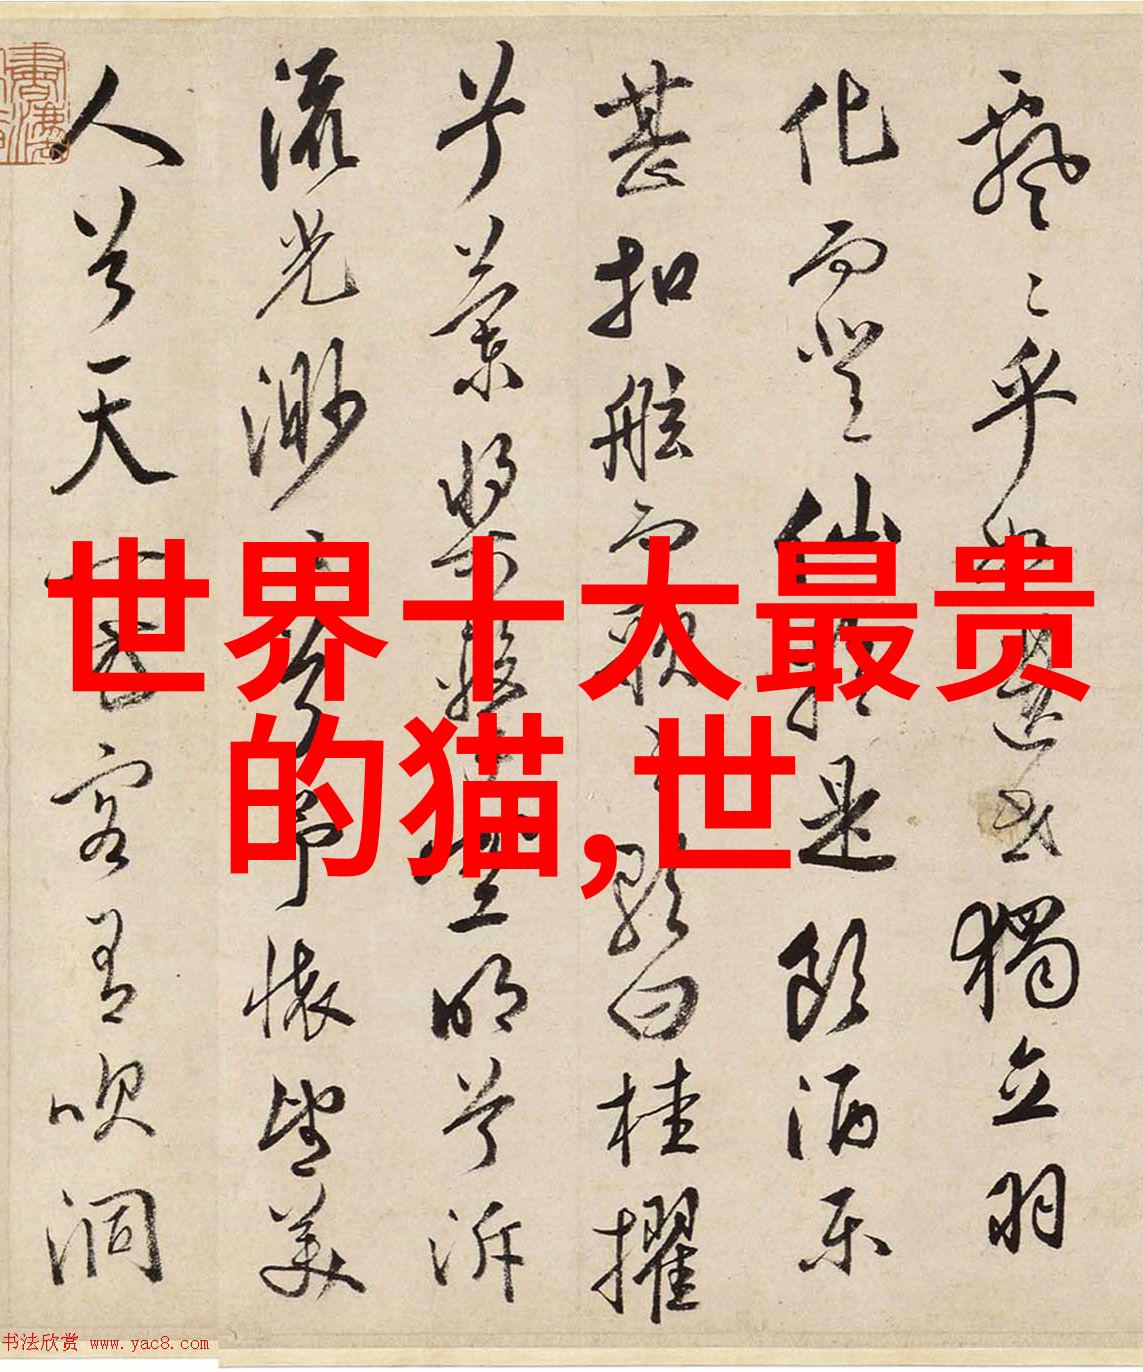 飄〻乎如遺世獨立羽
化而登仙於是飲酒樂
甚扣舷而歌之歌曰桂擢
兮蘭槳擊空明兮泝
流光渺〻兮予懷望美
人兮天一方客有吹洞
世界十大最贵
的猫,世
书法欣赏 www.yac8.com